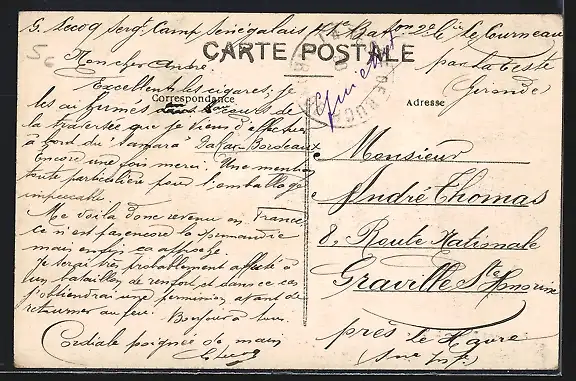 G. Lecoq Sergt Camp Sénégalais Bat.on Le Courneau
par La Teste
Gironde
CARTE POSTALE
Correspondance
Adresse
Mon cher André
Excellents les cigares; je
les ai fumés au cours de
la traversée que je viens d'effectuer
à bord du "Samara" Dakar-Bordeaux
Encore une fois merci. Une mention
toute particulière pour l'emballage
impeccable.
Me voilà donc revenu en France
ce n'est pas encore la
mais enfin ça approche
Je serai très probablement affecté à
un bataillon de renfort et dans ce cas
j'obtiendrai une permission avant de
retourner au feu. Bonjour à tous.
Cordiale poignée de main
Monsieur
André Thomas
8, Route Nationale
Graville Ste Honorine
près le Havre
(Sne Infre)